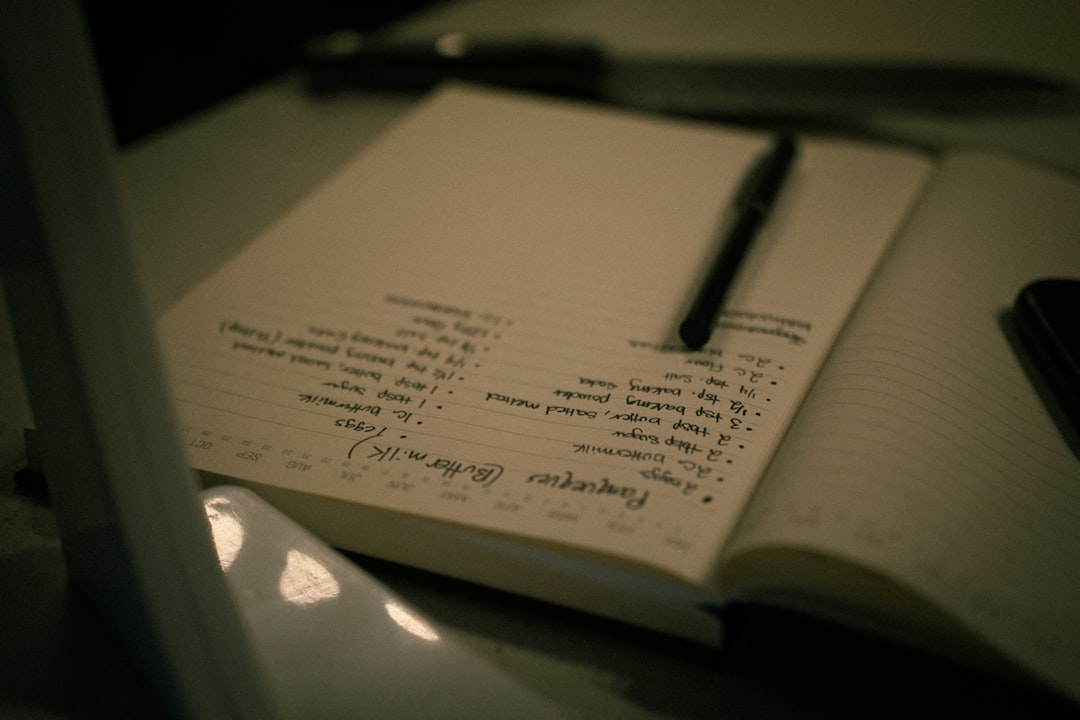 JAN FEB MAR APR MAY JUN JUL AUG SEP OCT
Panqueques (Buttermilk)
• 2 eggs
• 2 c. buttermilk
• 2 tbsp sugar
• 2 tbsp butter, salted melted
• 3 tsp baking powder
• 1/2 tsp baking soda
• 1/4 tsp. salt
• 2 c. flour
• 1 eggs
• 1 c. buttermilk
• 1 tbsp sugar
• 1 tbsp butter, salted melted
• 1 1/2 tsp baking powder
• 1/4 tsp baking soda
• 1/8 tsp salt